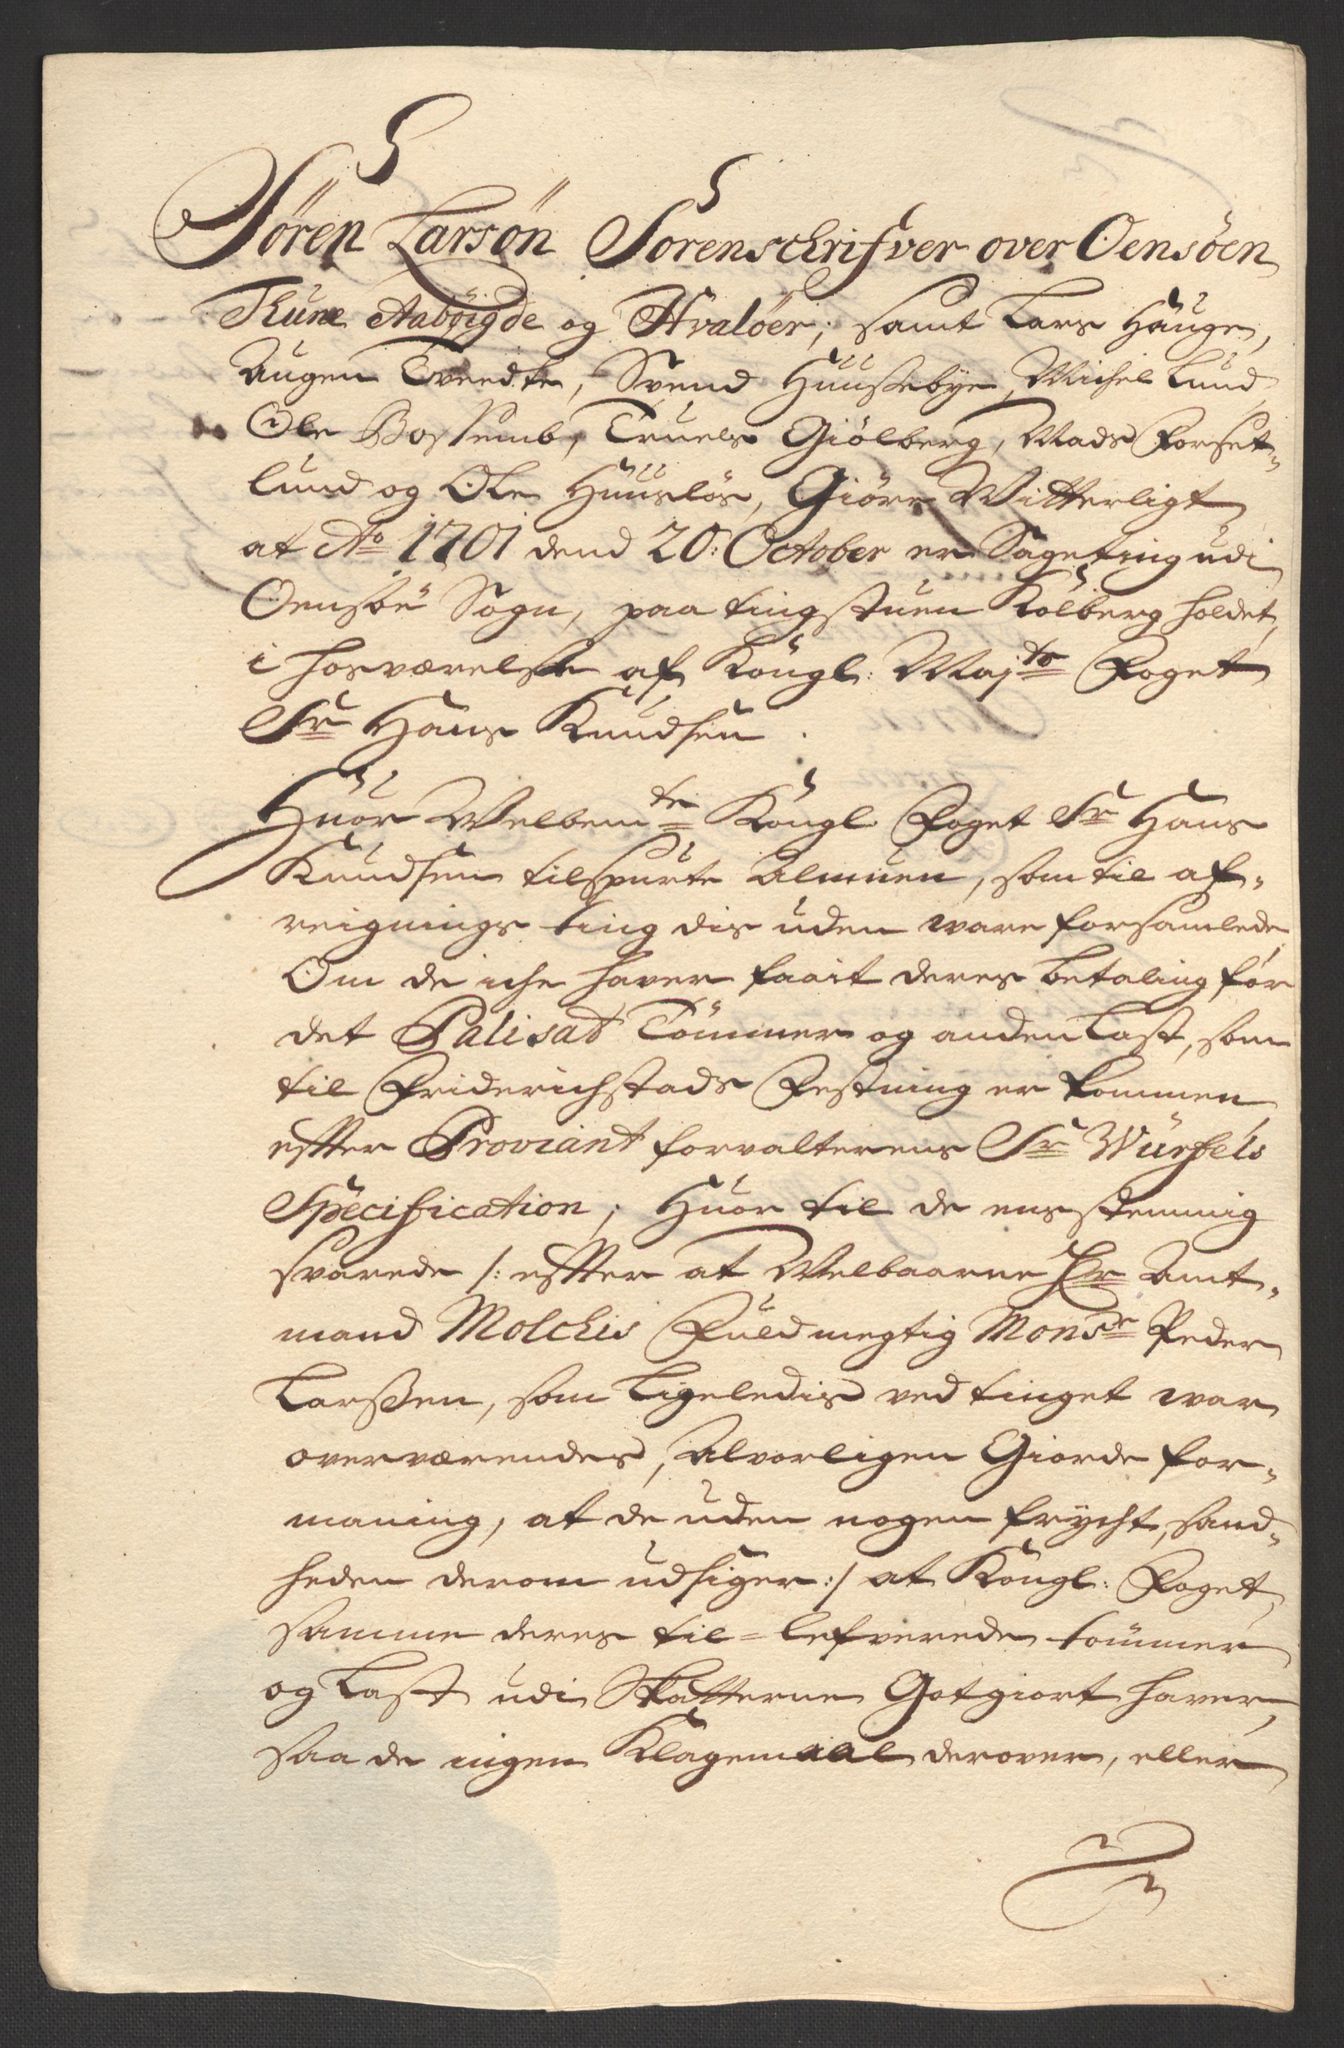 Sören Larsøn Sorenschrifver over Oensöen
Thune Aabøigde og Hvaløer; samt Lars Hauge,
Augen Tveedte, Svend Huussebye, Michel Lund
Ole Bossumb, Truels Giölberg, Mads Forset-
lund og Ole Huusløs, Giöre Witterligt
at Ao 1701 dend 20: October er Sageting udi
Oensöe Sogn, paa tingstuen Kölberg holdet,
i hosværelse af Kongl: Majts Foget
Sr Hans Knudsen.
Huor Welbemte Kongl Foget Sr Hans
Knudsen tilspurte Almuen, som til af-
reignings ting dis uden ware forsamlede
Om de iche hafver faait deres betaling for
det Palisad Tömmer og anden Last, som
til Friderichstads Festning er kommen
effter Proviant forvalterens Sr Würfels
Specification; Huor til de eensstemmig
svarede /: effter at Welbaarne Hr Amt-
mand Molchis Fuldmegtig Monsr Peder
Larssen, som Ligeledis ved tinget war
overværendes, Alvorligen Giorde for-
maning, at de uden nogen frycht, sand-
heden derom udsiger :/ at Kongl: Foget,
samme deres til-lefverede tömmer
og Last udi Skatterne Gotgiort haver,
saa de ingen Klagemaal derover, eller